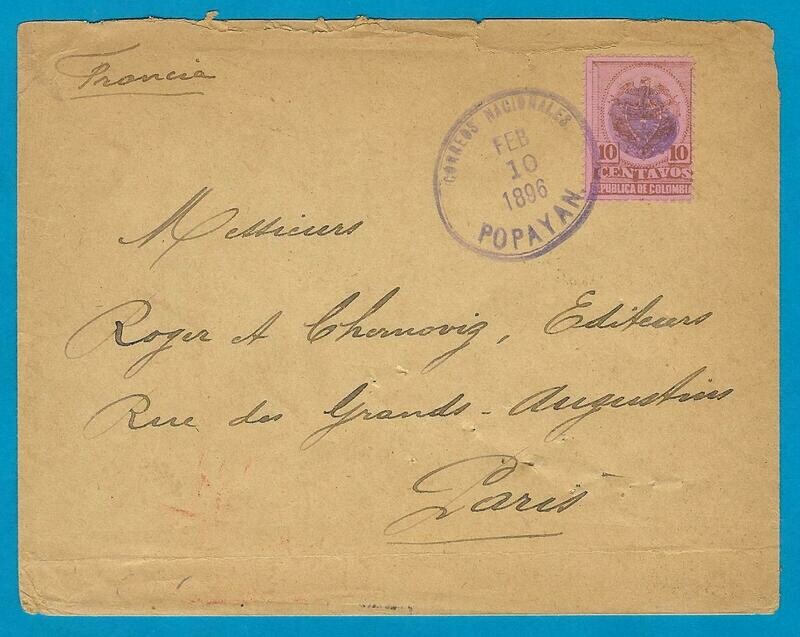 Francia
CORREOS NACIONALES
FEB
10
1896
POPAYAN.
10 10
CENTAVOS
REPUBLICA DE COLOMBIA
Messieurs
Roger et Chernoviz, Editeurs
Rue des Grands-Augustins
Paris